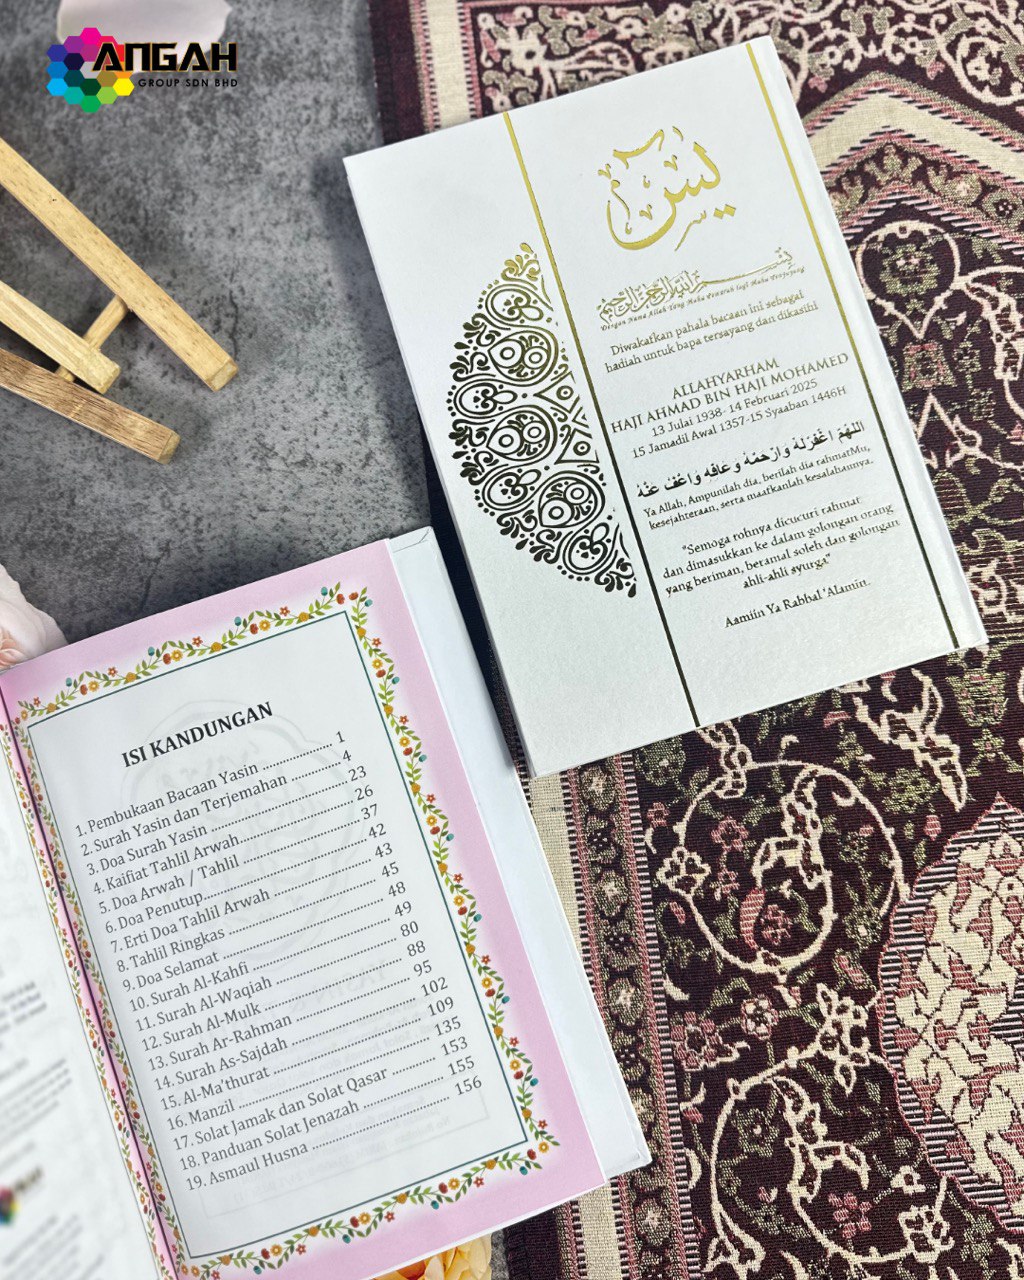 ANGAH
GROUP SDN BHD
يس
بسم الله الرحمن الرحيم
Dengan Nama Allah Yang Maha Pemurah lagi Maha Penyayang
Diwakafkan pahala bacaan ini sebagai
hadiah untuk bapa tersayang dan dikasihi
ALLAHYARHAM
HAJI AHMAD BIN HAJI MOHAMED
13 Julai 1938- 14 Februari 2025
15 Jamadil Awal 1357-15 Syaaban 1446H
اللهم اغفرله وارحمه وعافه واعف عنه
Ya Allah, Ampunilah dia, berilah dia rahmatMu,
kesejahteraan, serta maafkanlah kesalahannya.
"Semoga rohnya dicucuri rahmat
dan dimasukkan ke dalam golongan orang
yang beriman, beramal soleh dan golongan
ahli-ahli syurga"
Aamiin Ya Rabbal 'Alamin..
ISI KANDUNGAN
1. Pembukaan Bacaan Yasin .................. 1
2. Surah Yasin dan Terjemahan ............ 4
3. Doa Surah Yasin ............................ 23
4. Kaifiat Tahlil Arwah........................ 26
5. Doa Arwah / Tahlil ........................ 37
6. Doa Penutup.................................. 42
7. Erti Doa Tahlil Arwah ..................... 43
8. Tahlil Ringkas ............................... 45
9. Doa Selamat ................................. 48
10. Surah Al-Kahfi ............................ 49
11. Surah Al-Waqiah ......................... 80
12. Surah Al-Mulk ............................ 88
13. Surah Ar-Rahman ....................... 95
14. Surah As-Sajdah ......................... 102
15. Al-Ma'thurat .............................. 109
16. Manzil ...................................... 135
17. Solat Jamak dan Solat Qasar ......... 153
18. Panduan Solat Jenazah ................ 155
19. Asmaul Husna ............................ 156